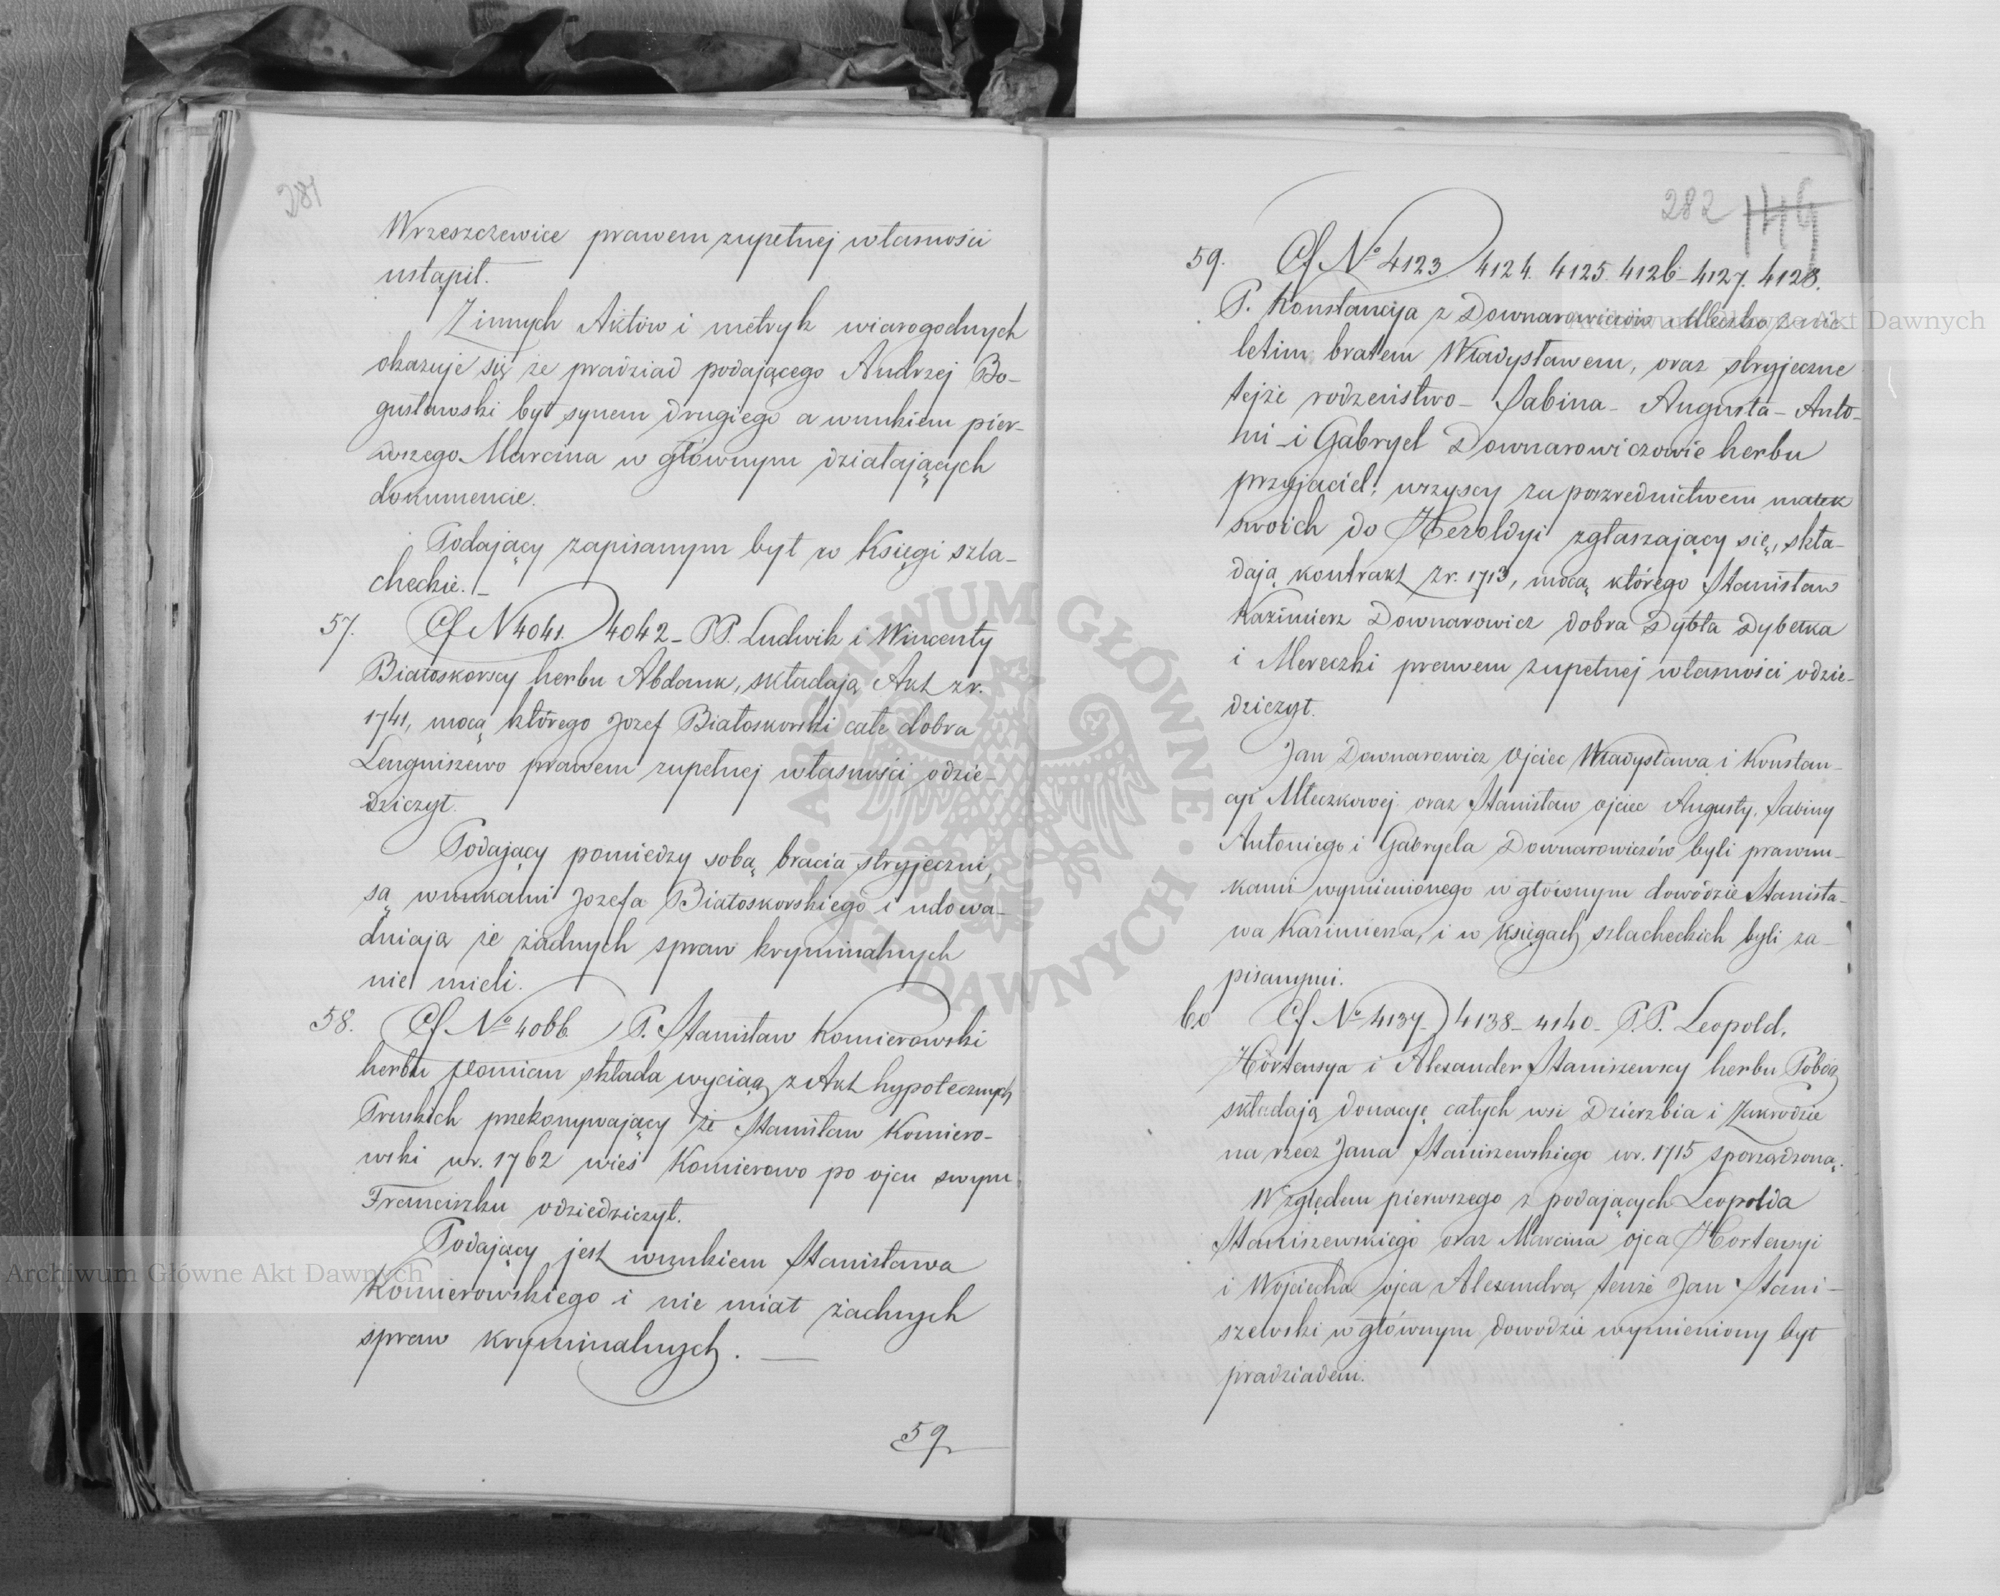 281
Wrzeszczewice prawem zupełnej własności
ustąpił.
Z innych Aktów i metryk wiarogodnych
okazuje się że pradziad podającego Andrzej Bo-
gusławski był synem drugiego a wnukiem pier-
wszego Marcina w głównym działających
dokumencie.
Podający zapisanym był w Księgi szla-
checkie.
57. Cf N 4041. 4042 - PP. Ludwik i Wincenty
Białoskorscy herbu Abdank, składają Akt z r.
1741, mocą którego Jozef Białoskorski całe dobra
Lenguiszewo prawem zupełnej własności odzie-
dziczył.
Podający pomiedzy sobą bracia stryjeczni,
są wnukami Jozefa Białoskorskiego i udowa-
dniają że żadnych spraw kryminalnych
nie mieli.
58. Cf No 4066. P. Stanisław Komierowski
herbu Pomian składa wyciąg z Akt hypotecznych
Pruskich przekonywający że Stanisław Komiero-
wski w r. 1762 wieś Komierowo po ojcu swym
Franciszku odziedziczył.
Podający jest wnukiem Stanisława
Komierowskiego i nie miał żadnych
spraw kryminalnych. —
59
282 149
59. Cf No 4123 4124. 4125. 4126 - 4127. 4128.
P. Konstancyja z Downarowiczów Mleczko z
letim bratem Władysławem, oraz stryjeczne
tejże rodzeństwo - Sabina - Augusta - Anto-
ni - i Gabryel Downarowiczowie herbu
przyjaciel, wrzyscy za pozrednictwem matek
swoich do Heroldyi zgłaszający się, skła-
dają kontrakt z r. 1713, mocą którego Stanisław
Kazimierz Downarowicz dobra Dybła Dybełka
i Mereczki prawem zupełnej własności odzie-
dziczył.
Jan Downarowicz Ojciec Władysława i Konstan-
cyi Mleczkowej oraz Stanisław ojciec Augusty, Sabiny
Antoniego i Gabryela Downarowiczów byli prawnu-
kami wymienionego w głównym dowodzie Stanisła-
wa Kazimierza, i w księgach szlacheckich byli za-
pisanymi.
60 Cf No 4137 4138 - 4140 - P.P. Leopold,
Hortensya i Alexander Staniszewscy herbu Pobóg
składają donacyę całych wsi Dzierzbia i Zakrodzie
na rzecz Jana Staniszewskiego w r. 1715 sporządzoną.
Względem pierwszego z podających Leopolda
Staniszewskiego oraz Marcina ojca Hortensyi
i Wojciecha ojca Alexandra, tenże Jan Stani-
szewski w głównym dowodzie wymieniony był
pradziadem.
ARCHIWUM GŁÓWNE AKT DAWNYCH
Archiwum Główne Akt Dawnych
Archiwum Główne Akt Dawnych